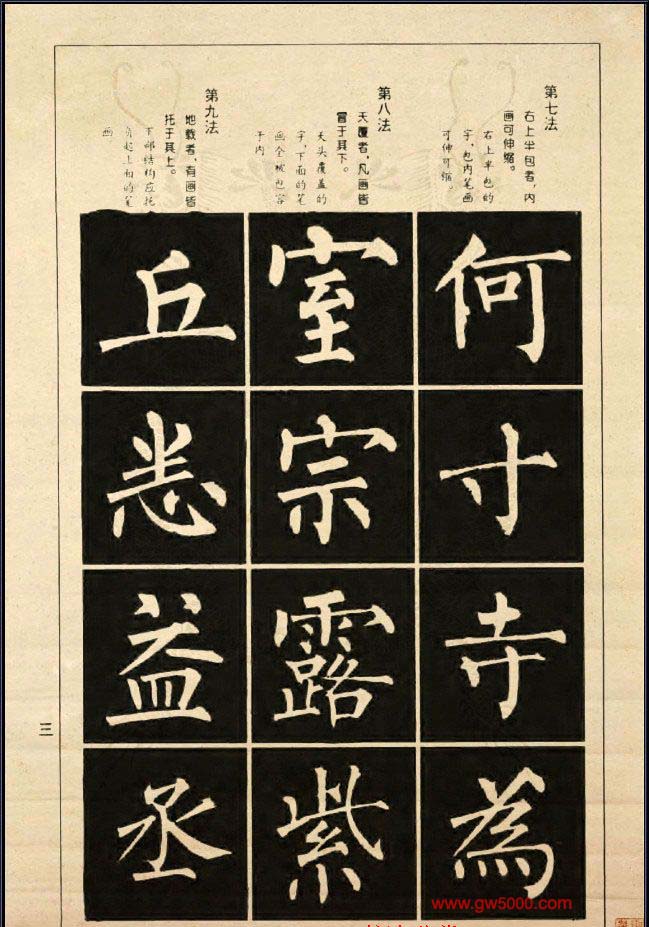 第七法
右上半包者，内
画可伸缩。
右上半包的
字，包内笔画
可伸可缩。
何
寸
寺
為
第八法
天覆者，凡画皆
冒于其下。
天头覆盖的
字，下面的笔
画全被包容
于内
室
宗
露
紫
第九法
地载者，有画皆
托于其上。
下部结构应托
负起上面的笔
画
丘
恙
益
丞
三
www.gw5000.com